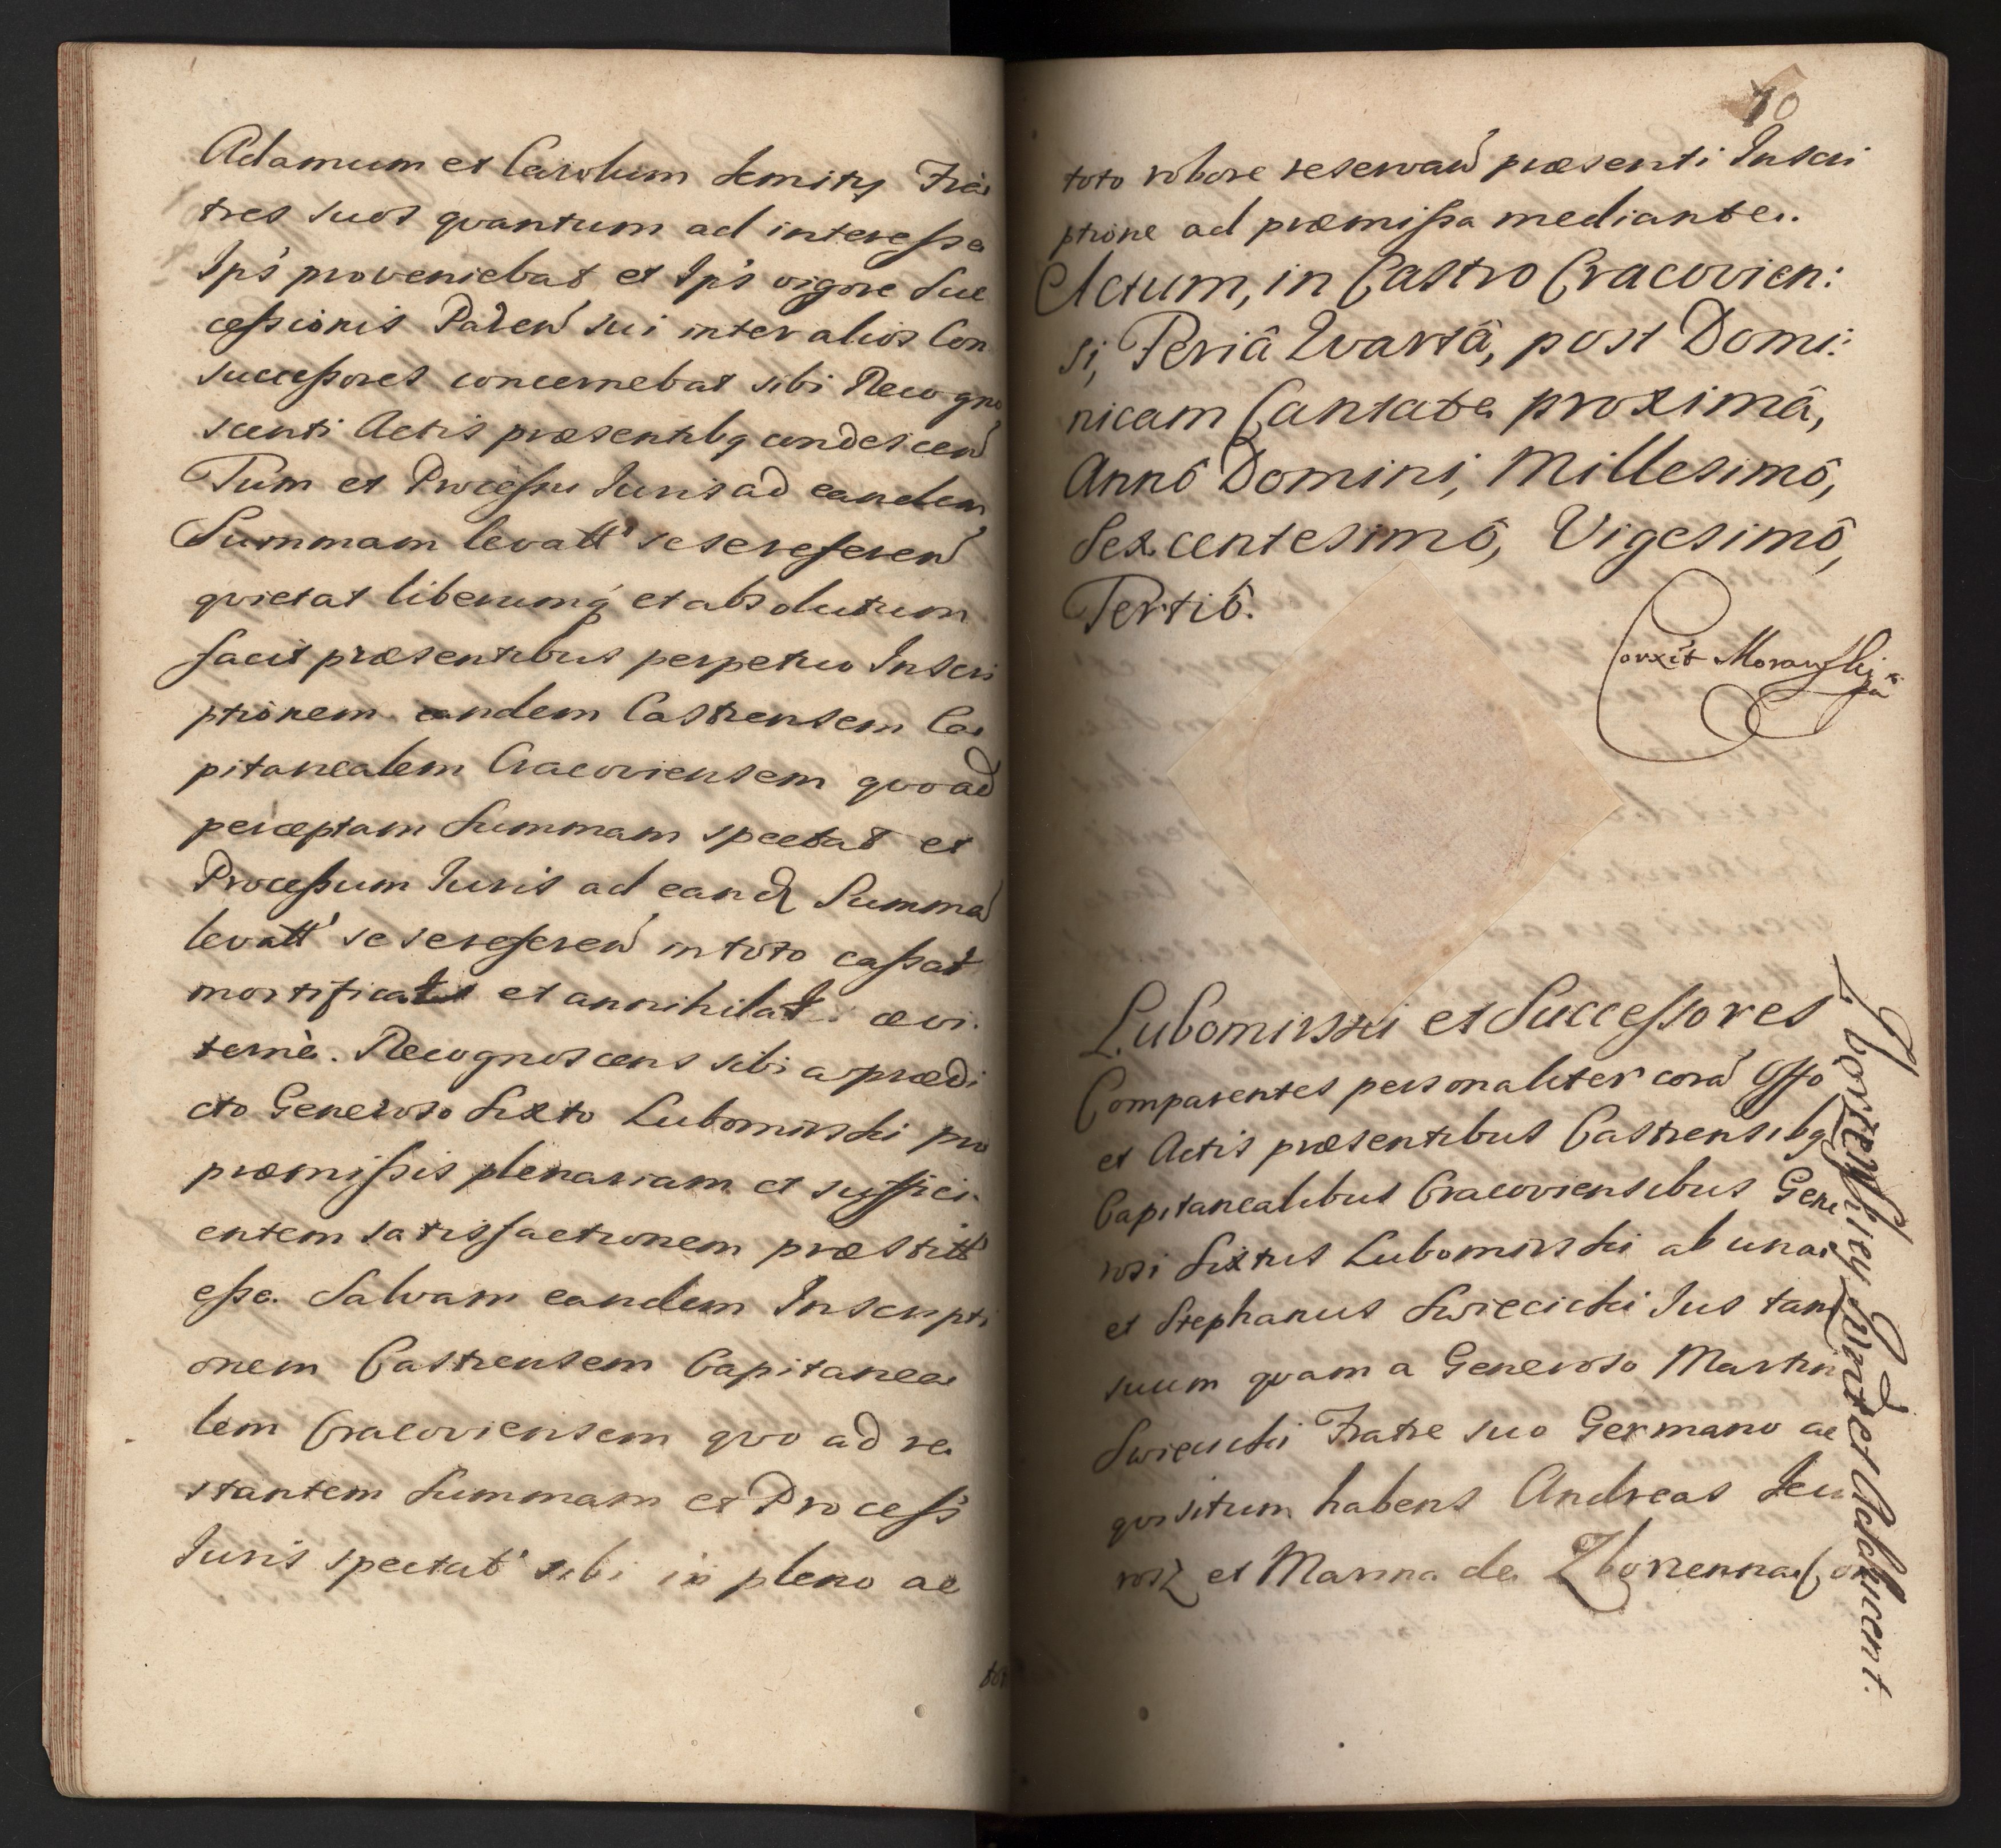 Adamum et Carolum semitq Fra
tres suos quantum ad interesse
Ips proveniebat et Ips vigore suc
cessionis Paren sui inter alios Con
successores concernebat sibi Recogno
scenti Actis præsentibq condescen
Tum et Processu Juris ad eandem
Summam levatt se se referen
quietat liberumq et absolutum
facit præsentibus perpetuo Inscri
ptionem eandem Castrensem Ca
pitanealem Cracoviensem quoad
perceptam Summam spectat et
Processum Juris ad eand Summa
levatt se se referen in toto cassat
mortificat et annihilat ævi
terne. Recognoscens sibi a prædi
cto Generoso Sixto Lubomirski pro
præmissis plenariam et suffici
entem satisfactionem præstitt
esse. Salvam eandem Inscripti
onem Castrensem Capitanea
lem Cracoviensem quo ad re
stantem Summam et Process
Juris spectat sibi in pleno ac
tot
10
toto robore reservan præsenti Inscri
ptione ad præmissa mediante.
Actum, in Castro Cracovien:
si, Feriâ Quartâ, post Domi:
nicam Cantate proximâ,
Annô Domini, Millesimô,
Sexcentesimô, Vigesimô,
Tertiô.
Corxit Morawski
Lubomirski et Successores
Zborzenskiey Quit et Adducent.
Comparentes personaliter corã Offo
et Actis præsentibus Castrensibq
Capitanealibus Cracoviensibus Gene
rosi Sixtus Lubomirski ab una
et Stephanus Swiecicki Jus tam
suum quam a Generoso Martin
Swiecicki Fratre suo Germano ac
quisitum habens Andreas
et Marina de